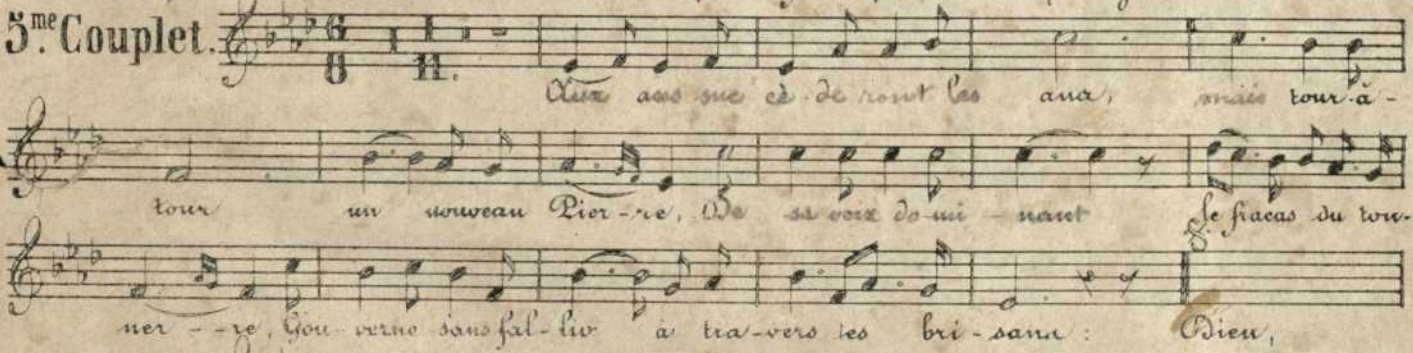 5.me Couplet. 6 8 1 11.
Aux ans suc cè-de ront les ans, mais tour-à-
tour un nouveau Pier-re, De sa voix do-mi-nant le fracas du ton-
ner--re, Gou-verne sans fal-lir à tra-vers les bri-sans: Dieu,